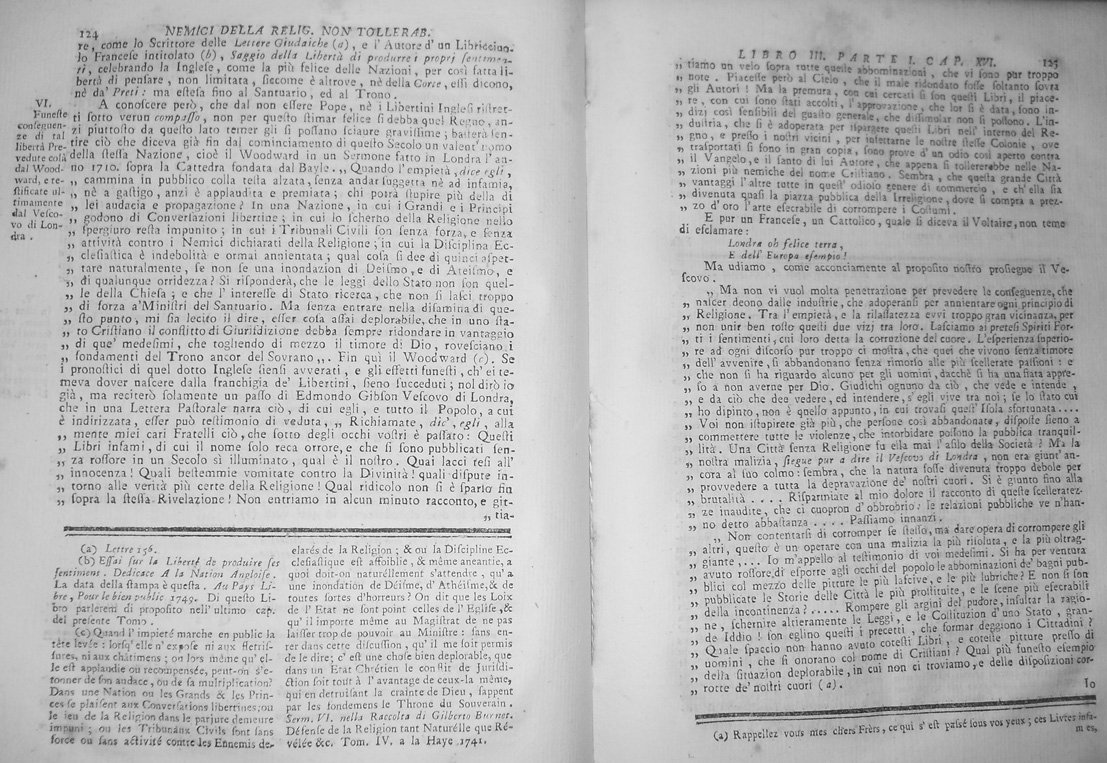 124 NEMICI DELLA RELIG. NON TOLLERAB.
re, come lo Scrittore delle Lettere Giudaiche (a), e l'Autore d'un Libricciuo-
lo Franceſe intitolato (b), Saggio della Libertà di produrre i proprj ſentimen-
ti, celebrando la Ingleſe, come la più felice delle Nazioni, per così fatta li-
bertà di penſare, non limitata, ſiccome è altrove, nè della Corte, eſſi dicono,
nè da' Preti: ma eſteſa fino al Santuario, ed al Trono.
VI.
Funeſte
conſeguen-
ze di tal
libertà Pre-
vedute colà
dal Wood-
ward, e te-
ſtificate ul-
timamente
dal Veſco-
vo di Lon-
dra.
A conoſcere però, che dal non eſſere Pope, nè i Libertini Ingleſi riſtret-
ti ſotto verun compaſſo, non per queſto ſtimar felice ſi debba quel Regno, an-
zi piuttoſto da queſto lato temer gli ſi poſſano ſciaure graviſſime; baſterà ſen-
tire ciò che diceva già fin dal cominciamento di queſto Secolo un valent'uomo
della ſteſſa Nazione, cioè il Woodward in un Sermone fatto in Londra l'an-
no 1710. ſopra la Cattedra fondata dal Bayle. „ Quando l'empietà, dice egli,
„ cammina in pubblico colla teſta alzata, ſenza andar ſuggetta nè ad infamia,
„ nè a gaſtigo, anzi è applaudita e premiata; chi potrà ſtupire più della di
„ lei audacia e propagazione? In una Nazione, in cui i Grandi e i Principi
„ godono di Converſazioni libertine; in cui lo ſcherno della Religione nello
„ ſpergiuro reſta impunito; in cui i Tribunali Civili ſon ſenza forza, e ſenza
„ attività contro i Nemici dichiarati della Religione; in cui la Diſciplina Ec-
„ cleſiaſtica è indebolita e ormai annientata; qual coſa ſi dee di quinci aſpet-
„ tare naturalmente, ſe non ſe una inondazion di Deiſmo, e di Ateiſmo, e
„ di qualunque orridezza? Si riſponderà, che le leggi dello Stato non ſon quel-
„ le della Chieſa; e che l'intereſſe di Stato ricerca, che non ſi laſci troppo
„ di forza a' Miniſtri del Santuario. Ma ſenza entrare nella diſamina di que-
„ ſto punto, mi ſia lecito il dire, eſſer coſa aſſai deplorabile, che in uno ſta-
„ to Criſtiano il conflitto di Giuriſdizione debba ſempre ridondare in vantaggio
„ di que' medeſimi, che togliendo di mezzo il timor di Dio, roveſciano i
„ fondamenti del Trono ancor del Sovrano „. Fin quì il Woodward (c). Se
i pronoſtici di quel dotto Ingleſe ſienſi avverati, e gli effetti funeſti, ch'ei te-
meva dover naſcere dalla franchigia de' Libertini, ſieno ſucceduti; nol dirò io
già, ma reciterò ſolamente un paſſo di Edmondo Gibſon Veſcovo di Londra,
che in una Lettera Paſtorale narra ciò, di cui egli, e tutto il Popolo, a cui
è indirizzata, eſſer può teſtimonio di veduta, „ Richiamate, dic'egli, alla
„ mente miei cari Fratelli ciò, che ſotto degli occhi voſtri è paſſato: Queſti
„ Libri infami, di cui il nome ſolo reca orrore, e che ſi ſono pubblicati ſen-
„ za roſſore in un Secolo sì illuminato, qual è il noſtro. Quai lacci teſi all'
„ innocenza! Quali beſtemmie vomitate contro la Divinità! quali diſpute in-
„ torno alle verità più certe della Religione! Qual ridicolo non ſi è ſparſo fin
„ ſopra la ſteſſa Rivelazione! Non entriamo in alcun minuto racconto, e git-
„ tia-
(a) Lettre 156.
(b) Eſſai ſur la Liberté de produire ſes
ſentimens. Dedicace A la Nation Angloiſe.
La data della ſtampa è queſta. Au Païs Li-
bre, Pour le bien public 1749. Di queſto Li-
bro parleremo di propoſito nell'ultimo cap.
del preſente Tomo.
(c) Quand l'impieté marche en public la
tête levée: lorſqu'elle n'expoſe ni aux fletriſ-
ſures, ni aux châtimens; ou lors même qu'el-
le eſt applaudie ou recompenſée, peut-on s'é-
tonner de ſon audace, ou de ſa multiplication?
Dans une Nation ou les Grands & les Prin-
ces ſe plaiſent aux Converſations libertines; ou
le jeu de la Religion dans le parjure demeure
impuni; ou les Tribunaux Civils ſont ſans
force ou ſans activité contre les Ennemis de-
clarés de la Religion; & ou la Diſcipline Ec-
cleſiaſtique eſt affoiblie, & même aneantie, a
quoi doit-on naturellement s'attendre, qu'a
une inondation de Déiſme, d'Athéiſme, & de
toutes ſortes d'horreurs? On dit que les Loix
de l'Etat ne ſont point celles de l'Egliſe, &
qu'il importe même au Magiſtrat de ne pas
laiſſer trop de pouvoir au Miniſtre: ſans en-
trer dans cette diſcuſſion, qu'il me ſoit permis
de le dire; c'eſt une choſe bien deplorable, que
dans un Etat Chrétien le conflit de Juriſdi-
ction ſoit toûjt à l'avantage de ceux-la même,
qui en detruiſant la crainte de Dieu, ſappent
par les fondemens le Throne du Souverain.
Serm. VI. nella Raccolta di Gilberto Burnet.
Défenſe de la Religion tant Naturelle que Ré-
vélée &c. Tom. IV. a la Haye 1741.
LIBRO III. PARTE I. CAP. XVI. 125
„ tiamo un velo ſopra tutte quelle abbominazioni, che vi ſono pur troppo
„ note. Piaceſſe però al Cielo, che il male ridondato foſſe ſoltanto ſovra
„ gli Autori! Ma la premura, con cui cercati ſi ſon queſti Libri, il piace-
„ re, con cui ſono ſtati accolti, l'approvazione, che lor ſi è data, ſono in-
„ dizj così ſenſibili del guaſto generale, che diſſimular non ſi poſſono. L'in-
„ duſtria, che ſi è adoperata per iſpargere queſti Libri nell'interno del Re-
„ gno, e preſſo i noſtri vicini, per infettarne le noſtre ſteſſe Colonie, ove
„ traſportati ſi ſono in gran copia, ſono prove d'un odio così aperto contra
„ il Vangelo, e il ſanto di lui Autore, che appena ſi tollererebbe nelle Na-
„ zioni più nemiche del nome Criſtiano. Sembra, che queſta grande Città
„ vantaggi l'altre tutte in queſt'odioſo genere di commercio, e ch'ella ſia
„ divenuta quaſi la piazza pubblica della Irreligione, dove ſi compra a prez-
„ zo d'oro l'arte eſecrabile di corrompere i Coſtumi.
E pur un Franceſe, un Cattolico, quale ſi diceva il Voltaire, non teme
di eſclamare:
Londra oh felice terra,
E dell'Europa eſempio!
Ma udiamo, come acconciamente al propoſito noſtro proſiegue il Ve-
ſcovo.
„ Ma non vi vuol molta penetrazione per prevedere le conſeguenze, che
„ naſcer deono dalle induſtrie, che adoperanſi per annientare ogni principio di
„ Religione. Tra l'empietà, e la rilaſſatezza evvi troppo gran vicinanza, per
„ non unir ben toſto queſti due vizj tra loro. Laſciamo ai preteſi Spiriti For-
„ ti i ſentimenti, cui loro detta la corruzione del cuore. L'eſperienza ſuperio-
„ re ad ogni diſcorſo pur troppo ci moſtra, che quei che vivono ſenza timore
„ dell'avvenire, ſi abbandonano ſenza rimorſo alle più ſcellerate paſſioni: e
„ che non ſi ha riguardo alcuno per gli uomini, dacchè ſi ha una fiata appre-
„ ſo a non averne per Dio. Giudichi ognuno da ciò, che vede e intende,
„ e da ciò che dee vedere, ed intendere, s'egli vive tra noi; ſe lo ſtato cui
„ ho dipinto, non è quello appunto, in cui trovaſi queſt'Iſola sfortunata....
„ Voi non iſtupirete già più, che perſone così abbandonate, diſpoſte ſieno a
„ commettere tutte le violenze, che intorbidare poſſono la pubblica tranquil-
„ lità. Una Città ſenza Religione fu ella mai l'aſilo della Società? Ma la
„ noſtra malizia, ſiegue pur a dire il Veſcovo di Londra, non era giunt'an-
„ cora al ſuo colmo: ſembra, che la natura foſſe divenuta troppo debole per
„ provvedere a tutta la depravazione de' noſtri cuori. Si è giunto fino alla
„ brutalità .... Riſparmiate al mio dolore il racconto di queſte ſcelleratez-
„ ze inaudite, che ci cuopron d'obbrobrio: le relazioni pubbliche ve n'han-
„ no detto abbaſtanza .... Paſſiamo innanzi.
„ Non contentarſi di corromper ſe ſteſſo, ma dare opera di corrompere gli
„ altri, queſto è un operare con una malizia la più riſoluta, e la più oltrag-
„ giante, ... Io m'appello al teſtimonio di voi medeſimi. Si ha per ventura
„ avuto roſſore, di eſporre agli occhi del popolo le abbominazioni de' bagni pub-
„ blici col mezzo delle pitture le più laſcive, e le più lubriche? E non ſi ſon
„ pubblicate le Storie delle Città le più proſtituite, e le ſcene più eſecrabili
„ della incontinenza? ..... Rompere gli argini del pudore, inſultar la ragio-
„ ne, ſchernire altieramente le Leggi, e le Coſtituzion d'uno Stato, gran-
„ de Iddio! ſon eglino queſti i precetti, che formar deggiono i Cittadini?
„ Quale ſpaccio non hanno avuto coteſti Libri, e coteſte pitture preſſo di
„ uomini, che ſi onorano col nome di Criſtiani? Qual più funeſto eſempio
„ della ſituazion deplorabile, in cui non ci troviamo, e delle diſpoſizioni cor-
„ rotte de' noſtri cuori (a).
Io
(a) Rappellez vous mes chers Frèrs, ce qui s'eſt paſsé ſous vos yeux; ces Livres infa-
mes,